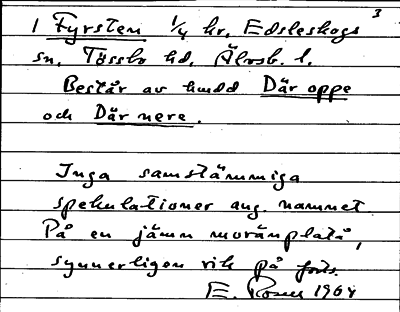 3
1 Fyrsten 1/4 hr, Edsleskogs
sn, Tössbo hd, Älvsb. l.
Består av hmdd Där oppe
och Där nere.
Inga samstämmiga
spekulationer ang. namnet
På en jämn moränplatå,
synnerligen rik på forts.
E. Rosell 1964